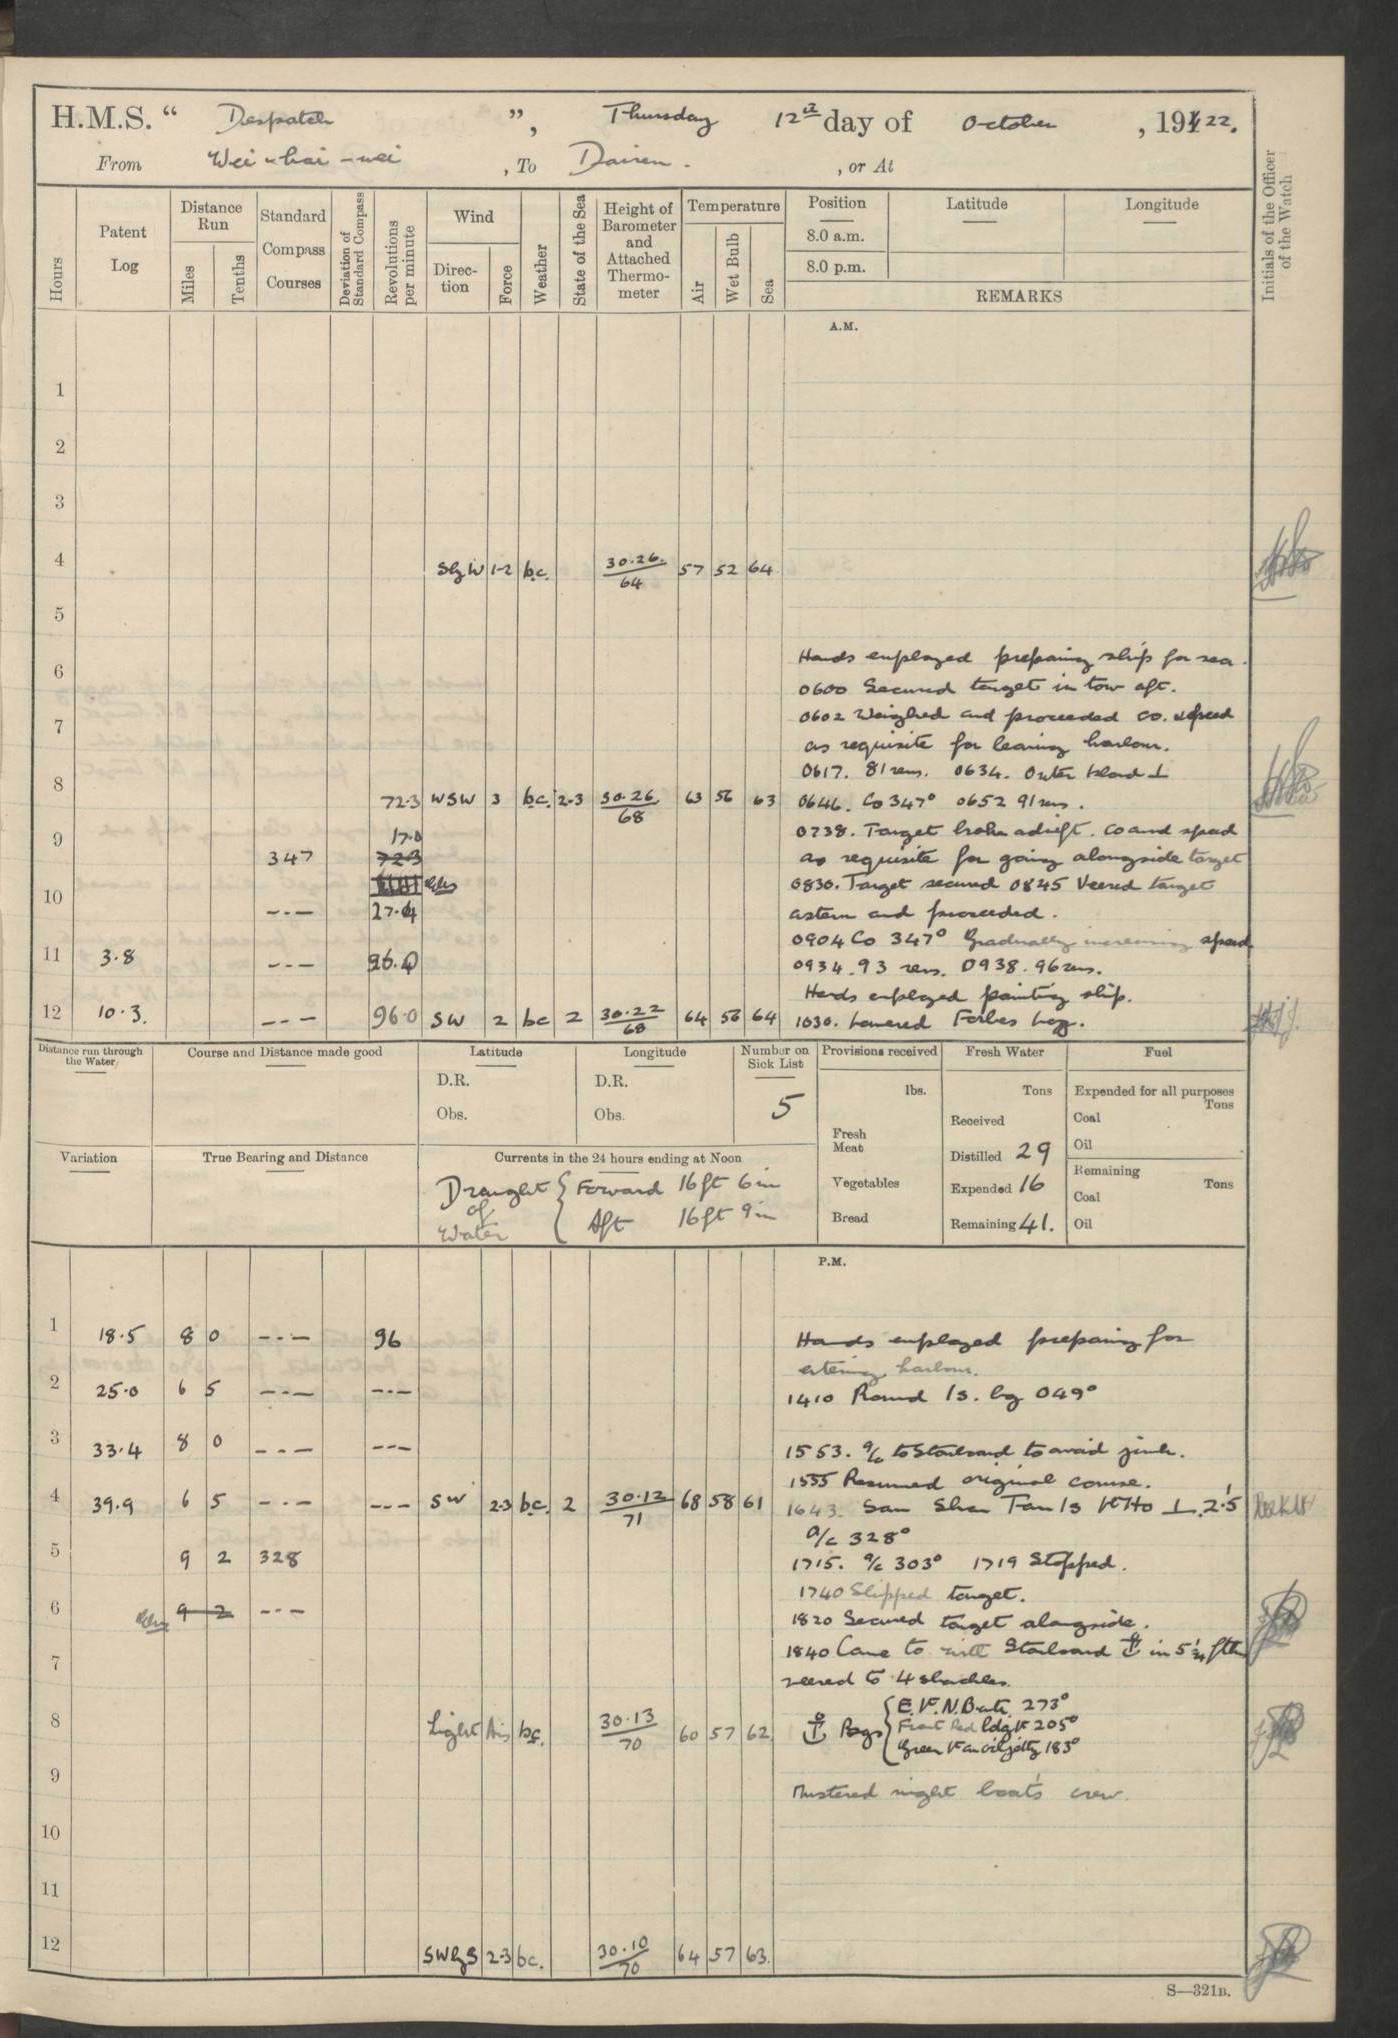 H.M.S. “ Despatch ”, Thursday 12th day of October, 191422.
From Wei-hai-wei, To Dairen., or At
Hours
Patent Log
Distance Run
Miles
Tenths
Standard Compass Courses
Deviation of Standard Compass
Revolutions per minute
Wind
Direction
Force
Weather
State of the Sea
Height of Barometer and Attached Thermometer
Temperature
Air
Wet Bulb
Sea
Position
8.0 a.m.
8.0 p.m.
Latitude
Longitude
REMARKS
Initials of the Officer of the Watch
A.M.
1
2
3
4 SbyW 1-2 bc. 30.26. 64 57 52 64
5
Hands employed preparing ship for sea.
6
0600 Secured target in tow aft.
0602 Weighed and proceeded co. & speed
7
as requisite for leaving harbour.
0617. 81 revs. 0634. Outer Island ⊥
8 72.3 WSW 3 bc. 2-3 30.26 68 63 56 63 0646. Co 347° 0652 91 revs.
0738. Target broken adrift. Co and speed
9 347 17.0 72.3 as requisite for going alongside target
0830. Target secured 0845 Veered target
10 -.- 27.4 astern and proceeded.
0904 Co 347° Gradually increasing speed
11 3.8 -.- 96.0 0934. 93 revs. 0938. 96 revs.
Hands employed painting ship.
12 10.3. --- 96.0 SW 2 bc 2 30.22 68 64 56 64 1030. Lowered Forbes Log.
Distance run through the Water
Course and Distance made good
Latitude
D.R.
Obs.
Longitude
D.R.
Obs.
Number on Sick List
5
Provisions received
lbs.
Fresh Meat
Vegetables
Bread
Fresh Water
Tons
Received
Distilled 29
Expended 16
Remaining 41.
Fuel
Expended for all purposes
Tons
Coal
Oil
Remaining
Tons
Coal
Oil
Variation
True Bearing and Distance
Currents in the 24 hours ending at Noon
Draught of Water { Forward 16ft 6in
Aft 16ft 9in
P.M.
1 18.5 8 0 -.- 96 Hands employed preparing for
entering harbour.
2 25.0 6 5 -.- -.- 1410 Round Is. bg 049°
3 33.4 8 0 -.- --- 1553. a/c to Starboard to avoid junk.
1555 Resumed original course.
4 39.9 6 5 -.- --- SW 2-3 bc. 2 30.12 71 68 58 61 1643. San Shan Tau Is Lt Ho ⊥ 2'.5
a/c 328°
5 9 2 328 1715. a/c 303° 1719 Stopped.
1740 Slipped target.
6 9 2 --- 1820 Secured target alongside.
1840 Came to with Starboard ⚓ in 5¼ fthm
7
veered to 4 shackles.
8 Light Airs bc. 30.13 70 60 57 62 ⚓ Bgs { E. Lt. N. Bwtr. 273°
Front Red ldg Lt 205°
Green Lt on oil jetty 183°
9 Mustered night boat's crew.
10
11
12 SWbyS 2-3 bc. 30.10 70 64 57 63.
S—321B.